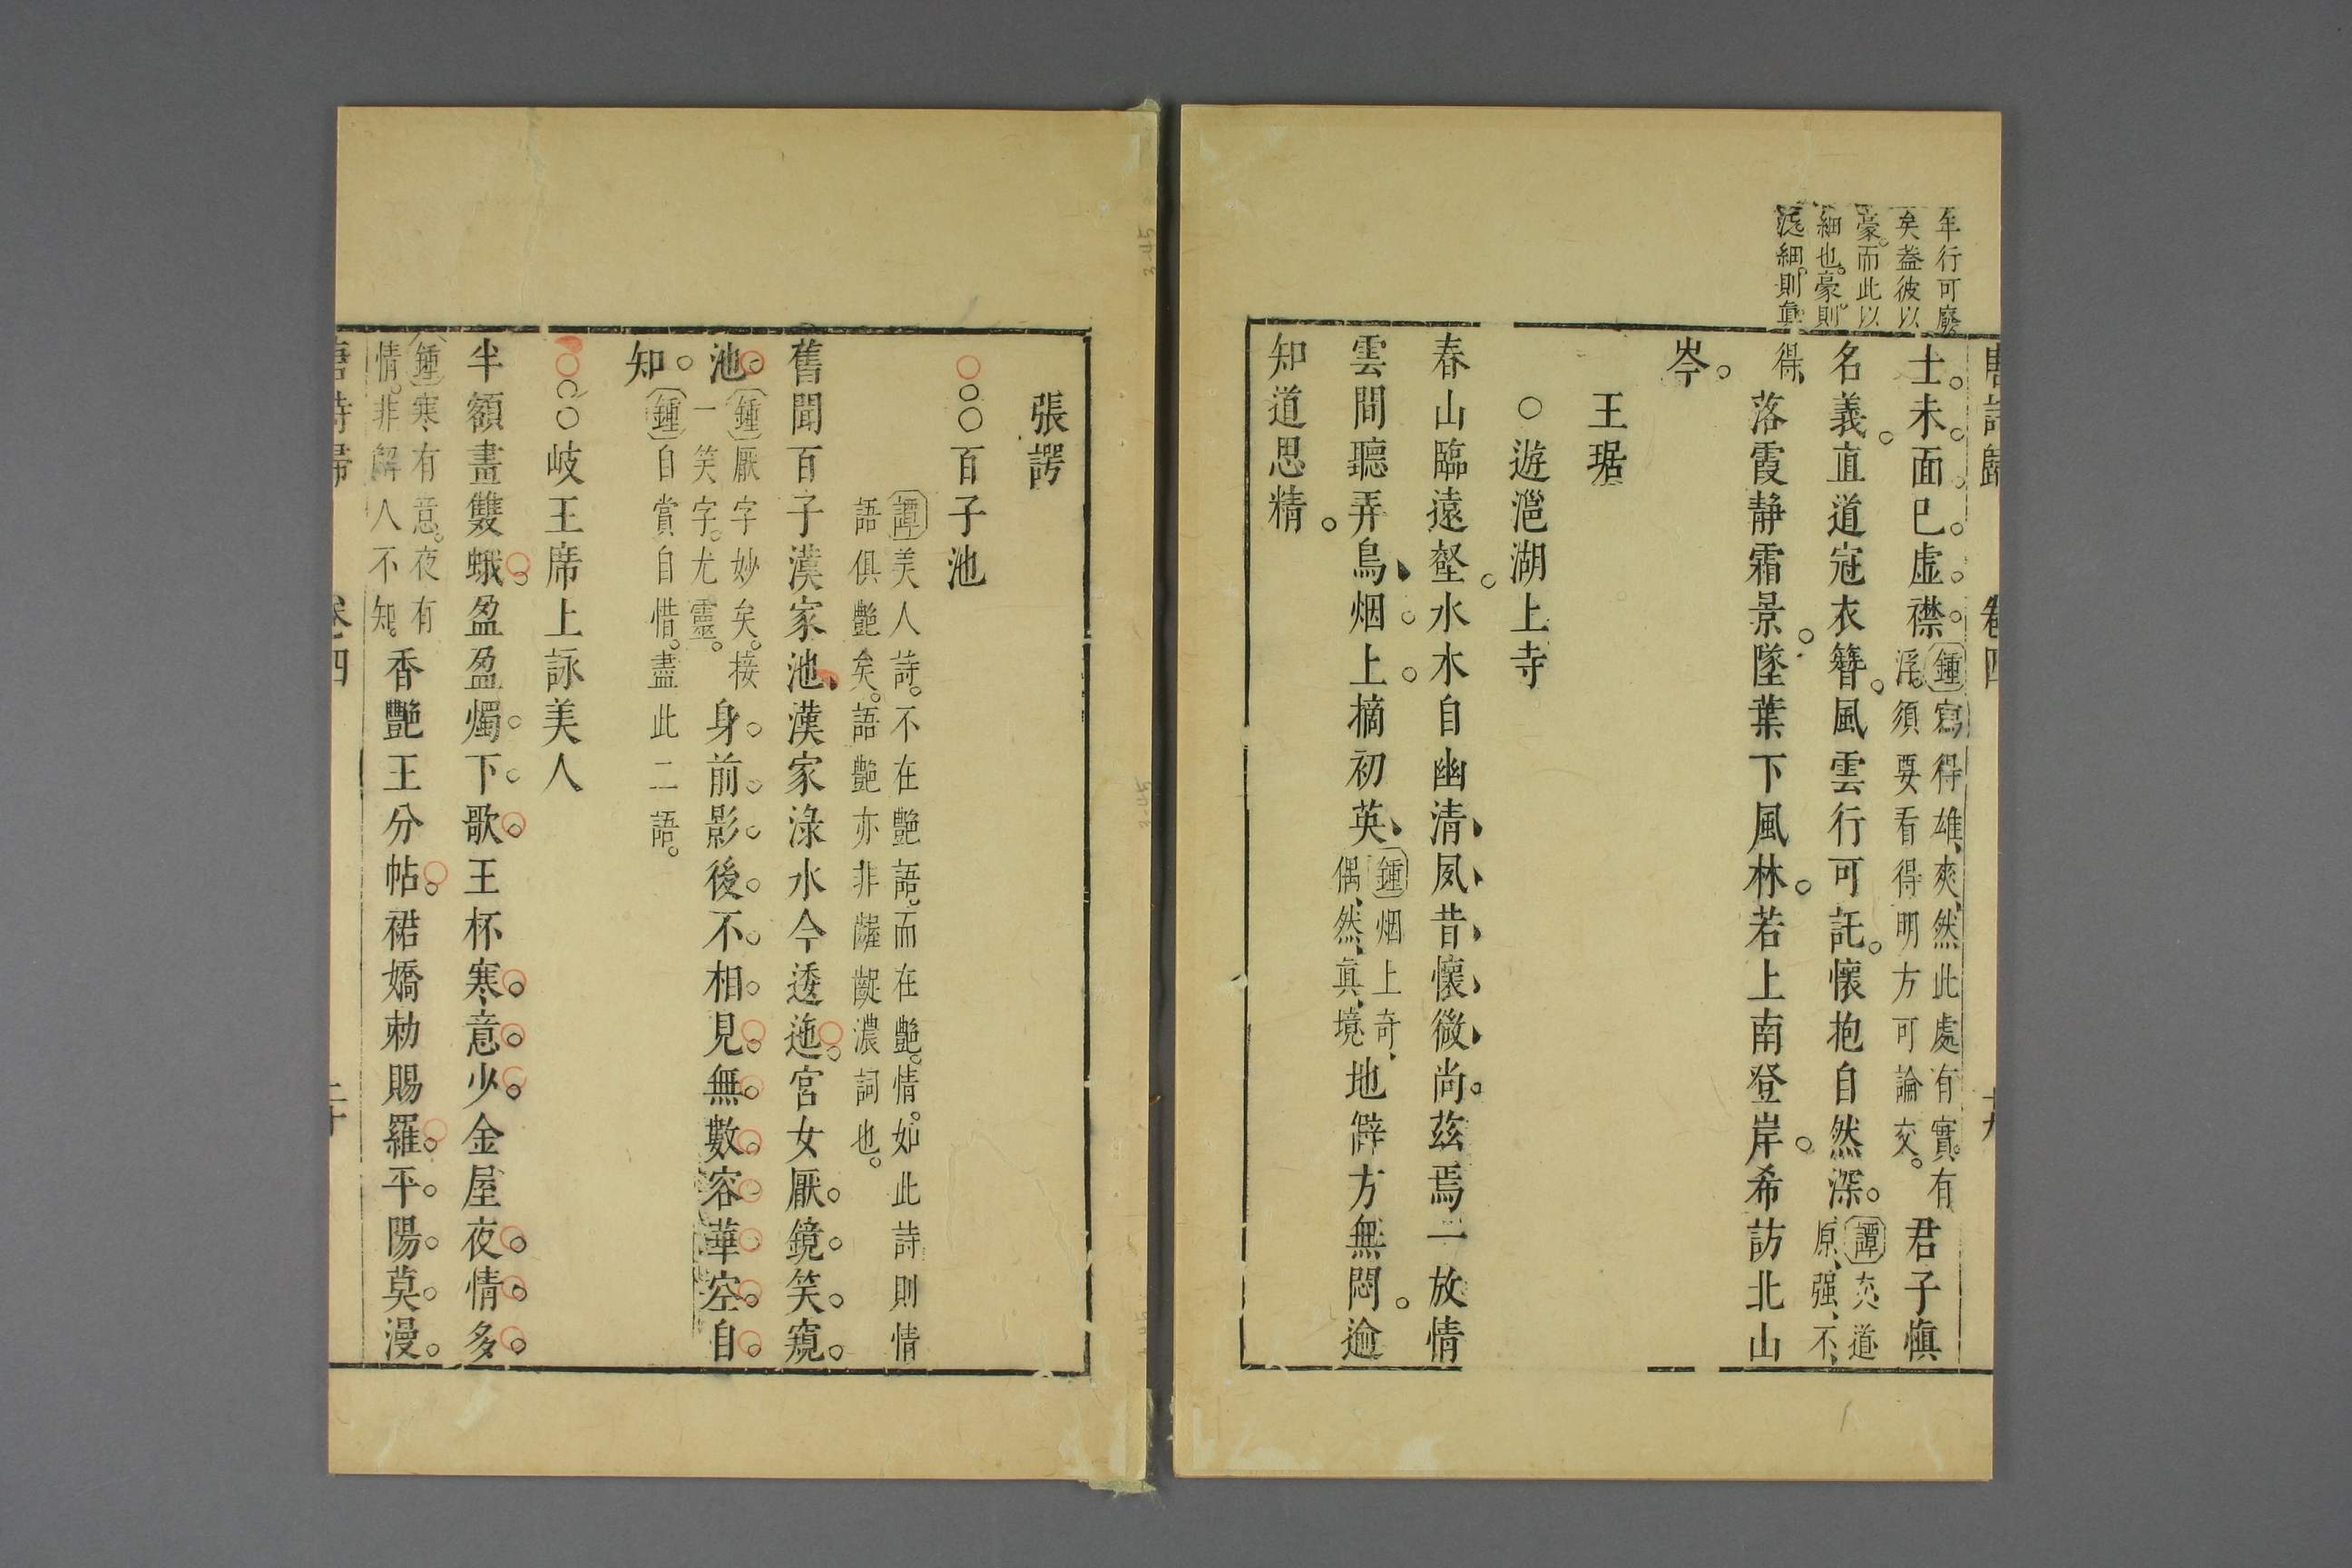 年行可廢
矣蓋彼以
豪而此以
細也豪則
淺細則真
唐詩歸 卷四 十九
士。未面已虛襟。鍾寫得雄爽、然此處有實有
浮。須要看得明、方可論交。君子慎
名義。直道冠衣簪。風雲行可託。懷抱自然深。譚交道
原强、不
得、落霞靜霜景。墜葉下風林。若上南登岸。希訪北山
岑。
王琚
○遊灉湖上寺
春山臨遠壑。水木自幽清、夙昔懷微尚。茲焉一放情
雲間聽弄鳥、烟上摘初英、鍾烟上奇、
偶然、真境地僻方無悶。逾
知道思精。
張諤
○○○百子池
譚美人詩。不在艷語。而在艷情。如此詩則情
語俱艷矣。語艷亦非齷齪濃詞也。
舊聞百子漢家池、漢家淥水今逶迤。宮女厭鏡笑窺。
池。鍾厭字妙矣。接
一笑字。尤靈。身前影後不相見。無數容華空自
知。鍾自賞自惜。盡此二語。
○○○岐王席上詠美人
半額畫雙蛾。盈盈燭下歌。王杯寒意少。金屋夜情多。
鍾寒有意。夜有
情。非解人不知。香艷王分帖。裙嬌勅賜羅。平陽莫漫。
唐詩歸 卷四 二十